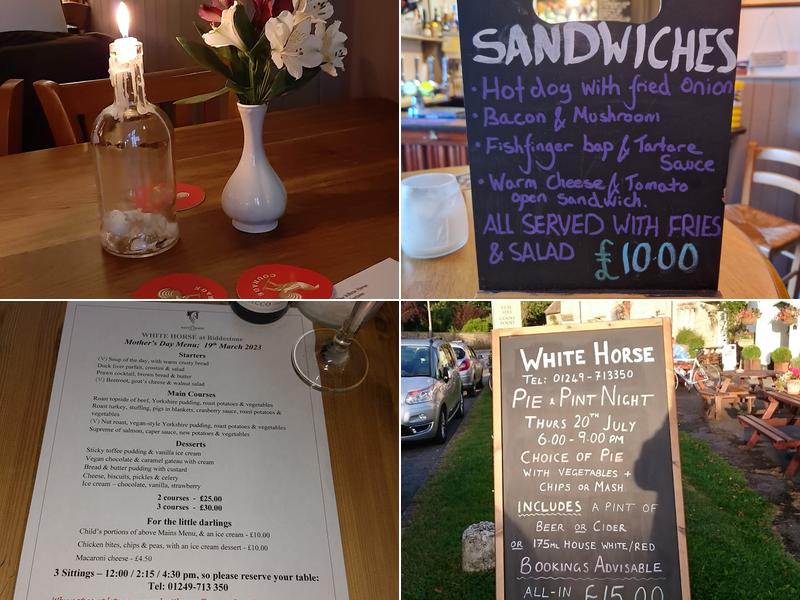 COURAGE
SANDWICHES
• Hot dog with fried Onion
• Bacon & Mushroom
• Fishfinger bap & Tartare
Sauce
• Warm Cheese & Tomato
open sandwich.
ALL SERVED WITH FRIES
& SALAD £10.00
WHITE HORSE at Biddestone
Mother's Day Menu; 19th March 2023
Starters
(V) Soup of the day, with warm crusty bread
Duck liver parfait, crostini & salad
Prawn cocktail, brown bread & butter
(V) Beetroot, goat's cheese & walnut salad
Main Courses
Roast topside of beef, Yorkshire pudding, roast potatoes & vegetables
Roast turkey, stuffing, pigs in blankets, cranberry sauce, roast potatoes &
vegetables
(V) Nut roast, vegan-style Yorkshire pudding, roast potatoes & vegetables
Supreme of salmon, caper sauce, new potatoes & vegetables
Desserts
Sticky toffee pudding & vanilla ice cream
Vegan chocolate & caramel gateau with cream
Bread & butter pudding with custard
Cheese, biscuits, pickles & celery
Ice cream – chocolate, vanilla, strawberry
2 courses - £25.00
3 courses - £30.00
For the little darlings
Child's portions of above Mains Menu, & an ice cream - £10.00
Chicken bites, chips & peas, with an ice cream dessert - £10.00
Macaroni cheese - £4.50
3 Sittings – 12:00 / 2:15 / 4:30 pm, so please reserve your table:
Tel: 01249-713 350
WHITE HORSE
TEL: 01249-713350
PIE & PINT NIGHT
THURS 20TH JULY
6:00 - 9:00 PM
CHOICE OF PIE
WITH VEGETABLES +
CHIPS OR MASH
INCLUDES A PINT OF
BEER OR CIDER
OR 175ML HOUSE WHITE/RED
BOOKINGS ADVISABLE
ALL-IN £15.00